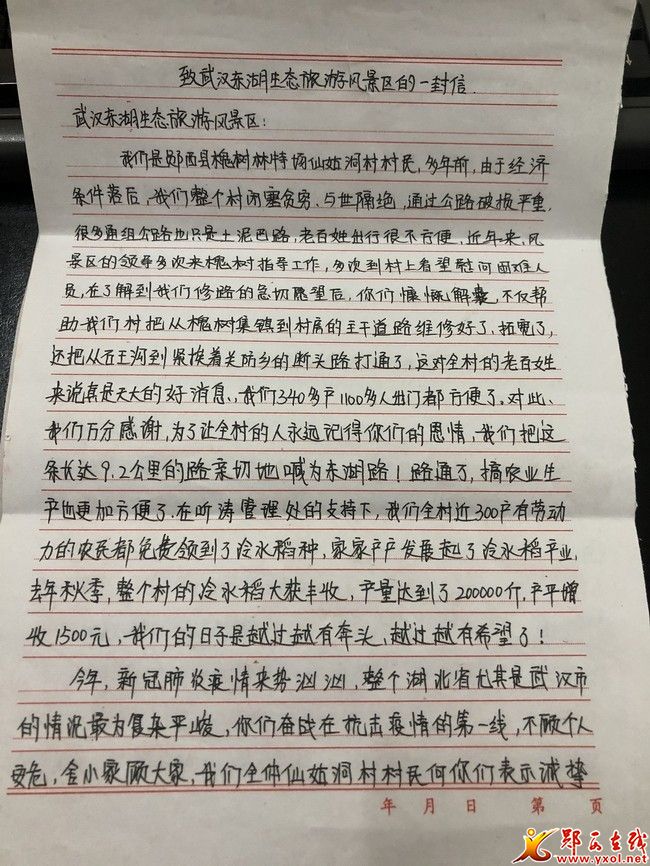 致武汉东湖生态旅游风景区的一封信
武汉东湖生态旅游风景区：
我们是郧西县槐树林特场仙姑洞村村民，多年前，由于经济
条件落后，我们整个村闭塞贫穷、与世隔绝，通过公路破损严重，
很多通组公路也只是土泥巴路，老百姓出行很不方便。近年来，风
景区的领导多次来槐树指导工作，多次到村上看望慰问困难人
员，在了解到我们修路的急切愿望后，你们慷慨解囊，不仅帮
助我们村把从槐树集镇到村居的主干道路维修好了、拓宽了，
还把从石王沟到紧挨着关防乡的断头路打通了，这对全村的老百姓
来说真是天大的好消息，我们340多户1100多人出门都方便了。对此、
我们万分感谢，为了让全村的人永远记得你们的恩情，我们把这
条长达9.2公里的路亲切地喊为东湖路！路通了，搞农业生
产也更加方便了。在听涛管理处的支持下，我们全村近300户有劳动
力的农民都免费领到了冷水稻种，家家户户发展起了冷水稻产业，
去年秋季，整个村的冷水稻大获丰收，产量达到了200000斤，户平增
收1500元，我们的日子是越过越有奔头、越过越有希望了！
今年，新冠肺炎疫情来势汹汹，整个湖北省尤其是武汉市
的情况最为复杂严峻，你们奋战在抗击疫情的第一线，不顾个人
安危，舍小家顾大家，我们全体仙姑洞村村民向你们表示诚挚
年 月 日 第 页
郧西在线
www.yxol.net